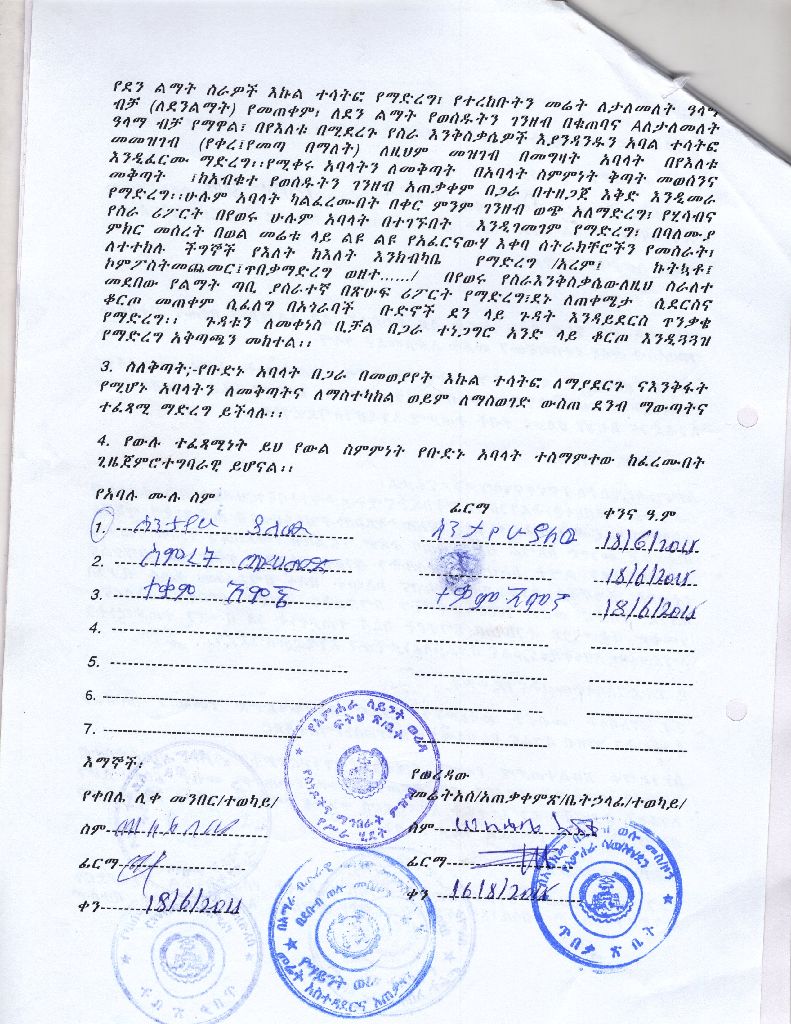 የደን ልማት ስራዎች እኩል ተሳትፎ የማድረግ፣ የተረከቡትን መሬት ለታለመለት ዓላማ
ብቻ (ለደንልማት) የመጠቀም፣ ለደን ልማት የወሰዱትን ገንዘብ በቁጠባና Aለታለመለት
ዓላማ ብቻ የማዋል፣ በየእለቱ በሚደረጉ የስራ እንቅስቃሴዎች እያንዳንዱን አባል ተሳትፎ
መመዝገብ (የቀረ፣የመጣ በማለት) ለዚህም መዝገብ በመግዛት አባላት በየእለቱ
እንዲፈርሙ ማድረግ፡፡የሚቀሩ አባላትን ለመቅጣት በአባላት ስምምነት ቅጣት መወሰንና
መቅጣት ፣ከአብቁተ የወሰዱትን ገንዘብ አጠቃቀም በጋራ በተዘጋጀ እቅድ እንዲመራ
የማድረግ፡፡ሁሉም አባላት ካልፈረሙበት በቀር ምንም ገንዘብ ወጭ አለማድረግ፣ የሂሳብና
የስራ ሪፖርት በየወሩ ሁሉም አባላት በተገኙበት እንዲገመገም የማድረግ፣ በባለሙያ
ምክር መሰረት በወል መሬቱ ላይ ልዩ ልዩ የአፈርናውሃ እቀባ ስትራክቸሮችን የመስራት፣
ለተተከሉ ችግኞች የእለት ከእለት እንክብካቤ የማድረግ /አረም፣ ኩትኳቶ፣
ኮምፖስትመጨመር፣ጥበቃማድረግ ወዘተ....../ በየወሩ የስራእንቅስቃሴውለዚህ ስራለተ
መደበው የልማት ጣቢ ያሰራተኛ በጽሁፍ ሪፖርት የማድረግ፣ደኑ ለጠቀሜታ ሲደርስና
ቆርጦ መጠቀም ሲፈልግ በአጎራባች ቡድኖች ደን ላይ ጉዳት እንዳይደርስ ጥንቃቄ
የማድረግ፡፡ ጉዳቱን ለመቀነስ ቢቻል በጋራ ተነጋግሮ አንድ ላይ ቆርጦ እንዲጓጓዝ
የማድረግ አቅጣጫን መከተል፡፡
3. ስለቅጣት;-የቡድኑ አባላት በጋራ በመወያየት እኩል ተሳትፎ ለማያደርጉ ናእንቅፋት
የሚሆኑ አባላትን ለመቅጣትና ለማስተካከል ወይም ለማስወገድ ውስጠ ደንብ ማውጣትና
ተፈጻሚ ማድረግ ይችላሉ፡፡
4. የውሉ ተፈጻሚነት ይህ የውል ስምምነት የቡድኑ አባላት ተስማምተው ከፈረሙበት
ጊዜጀምሮተግባራዊ ይሆናል፡፡
የአባሉ ሙሉ ስም ፊርማ ቀንና ዓ.ም
1. 18/6/2014
2. 18/6/2014
3. 18/6/2014
4.
5.
6.
7.
የአምሐራ ሳይንት ወረዳ
ፍትህ ጽ/ቤት
እማኞች፡
የወረዳው
የቀበሌ ሊቀ መንበር/ተወካይ/ መሬትአስ/አጠቃቀምጽ/ቤትኃላፊ/ተወካይ/
ስም ስም
ፊርማ ፊርማ
ቀን 18/6/2014 ቀን 16/8/2014